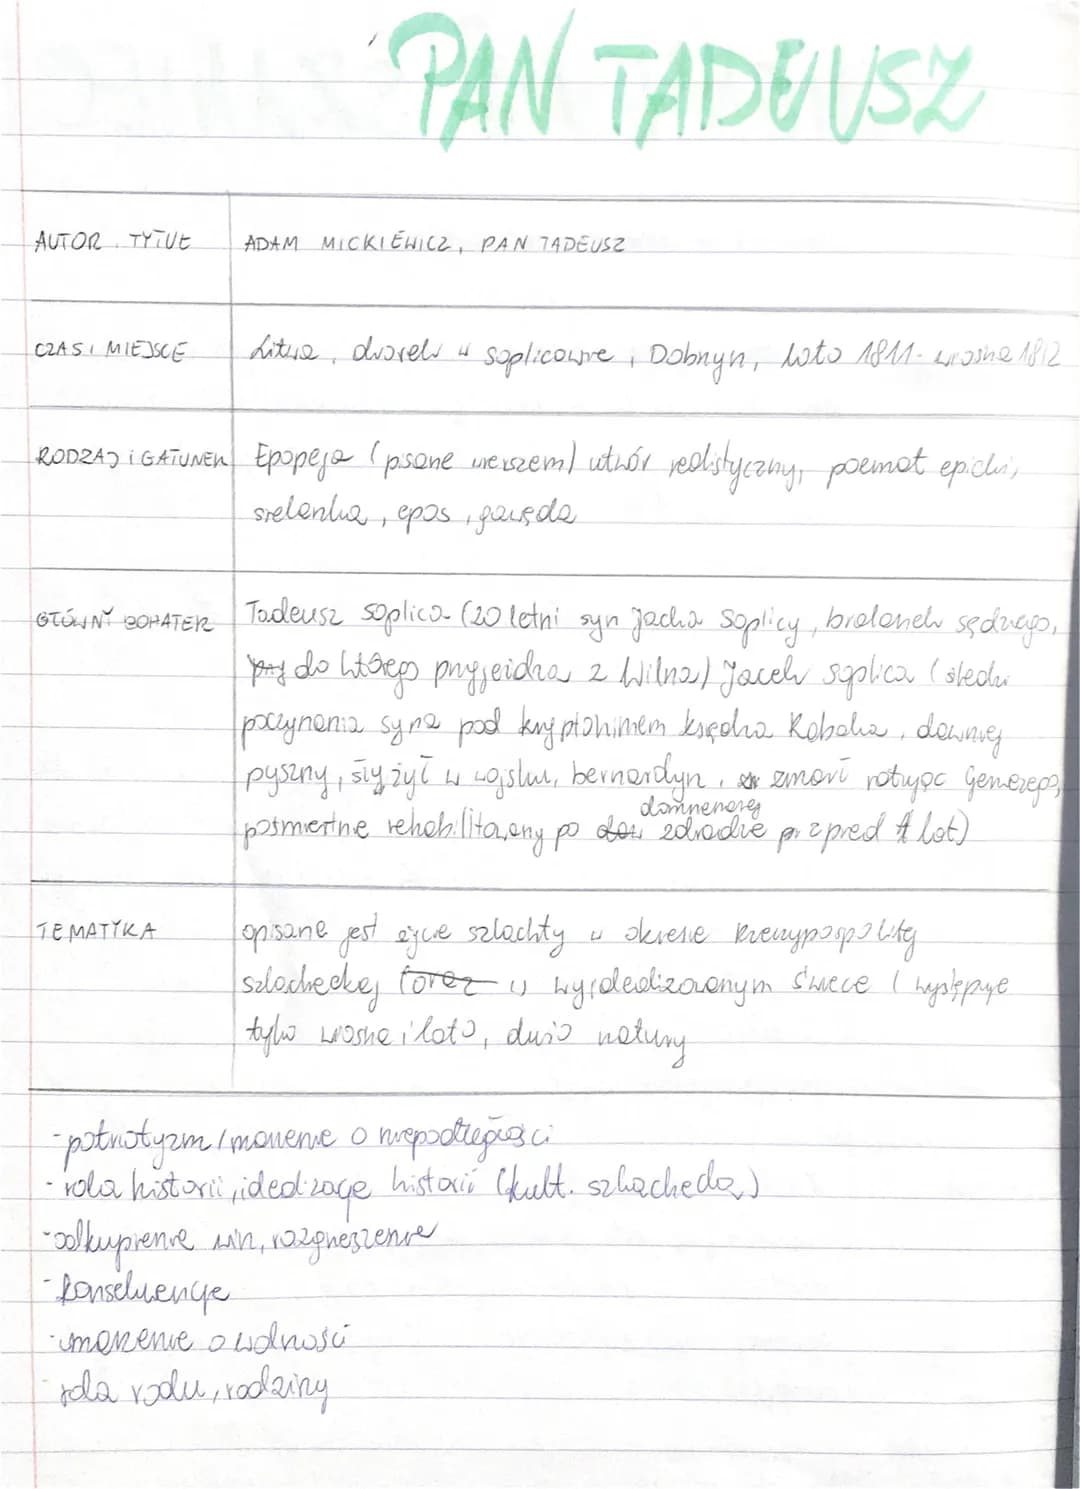 PAN TADEUSZ
AUTOR, TYTUŁ
ADAM MICKIEWICZ, PAN TADEUSZ
CZAS I MIEJSCE
Litwa, dworek w Soplicowie, Dobrzyn, lato 1811 - wiosna 1812
RODZAJ i GATUNEK
Epopeja (pisane wierszem) utwór realistyczny, poemat epicki,
sielanka, epos, gawęda
GŁÓWNY BOHATER
Tadeusz Soplica (20 letni syn Jacka Soplicy, bratanek sędziego,
do którego przyjeżdża z Wilna) Jacek Soplica (śledzi
poczynania syna pod kryptonimem księdza Robaka, dawniej
pyszny, służył w wojsku, bernardyn, zmarł ratując Gerwazego,
pośmiertnie rehabilitowany po domniemanej zdradzie przed lat)
TEMATYKA
opisane jest życie szlachty w okresie Rzeczypospolitej
szlacheckiej w wyidealizowanym świecie (występuje
tylko wiosna i lato, dużo natury
- patriotyzm / marzenie o niepodległości
- rola historii, idealizacja historii (kult. szlachecka)
- odkupienie win, rozgrzeszenie
- konsekwencje
- marzenie o wolności
- rola rodu, rodziny